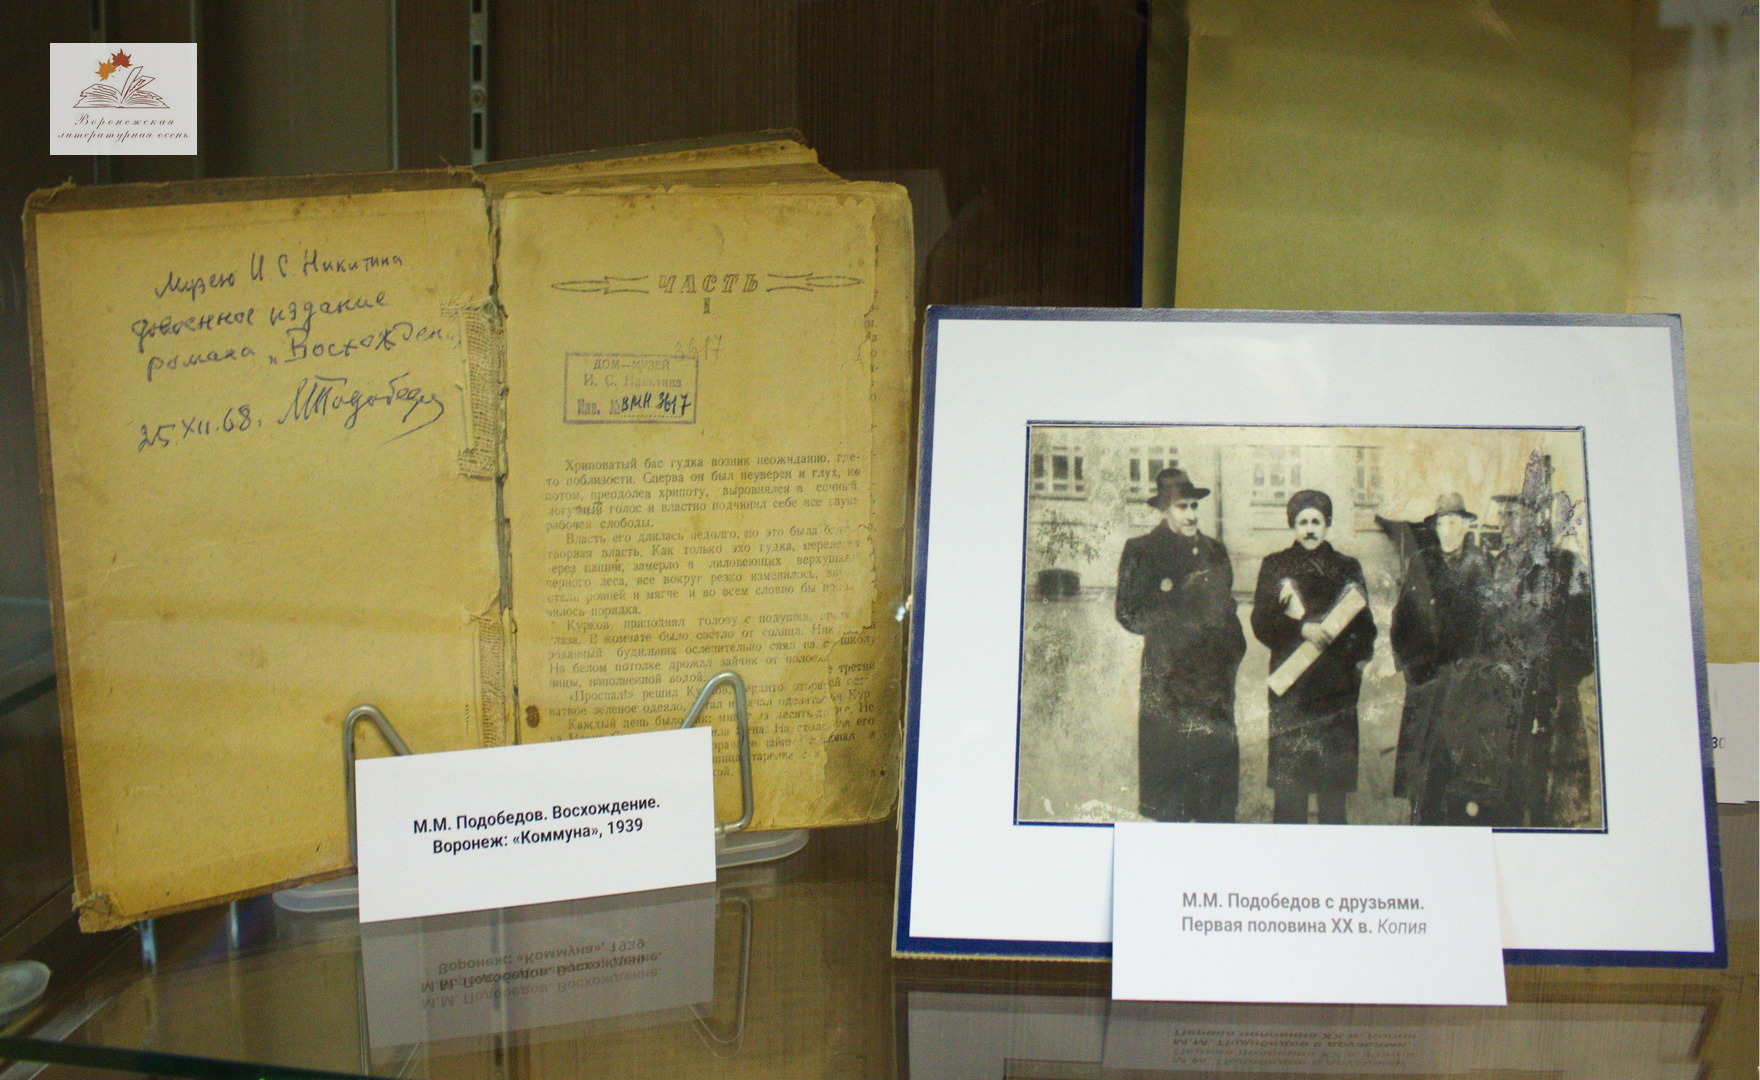 Воронежская
литературная осень
Музею И. С. Никитина
довоенное издание
романа „Восхожден
25.XII.68. МПодобед
ЧАСТЬ
I
3617
ДОМ—МУЗЕЙ
И. С. Никитина
Инв. № ВМН 3617
Хриповатый бас гудка возник неожиданно, где-
то поблизости. Сперва он был неуверен и глух, но
потом, преодолев хрипоту, выровнялся в сочный,
могучий голос и властно подчинил себе все звуки
рабочей слободы.
Власть его длилась недолго, но это была
творная власть. Как только эхо гудка,
через пашни, замерло в лиловеющих верхушках
черного леса, все вокруг резко изменилось,
стали ровней и мягче и во всем словно бы
лось порядка.
Курков приподнял голову с подушки,
глаза. В комнате было светло от солнца.
рованный будильник ослепительно сиял на
На белом потолке дрожал зайчик от
ницы, наполненной водой.
«Проспал!» решил
ватное зеленое одеяло,
Каждый день было
М.М. Подобедов. Восхождение.
Воронеж: «Коммуна», 1939
М.М. Подобедов с друзьями.
Первая половина XX в. Копия
30